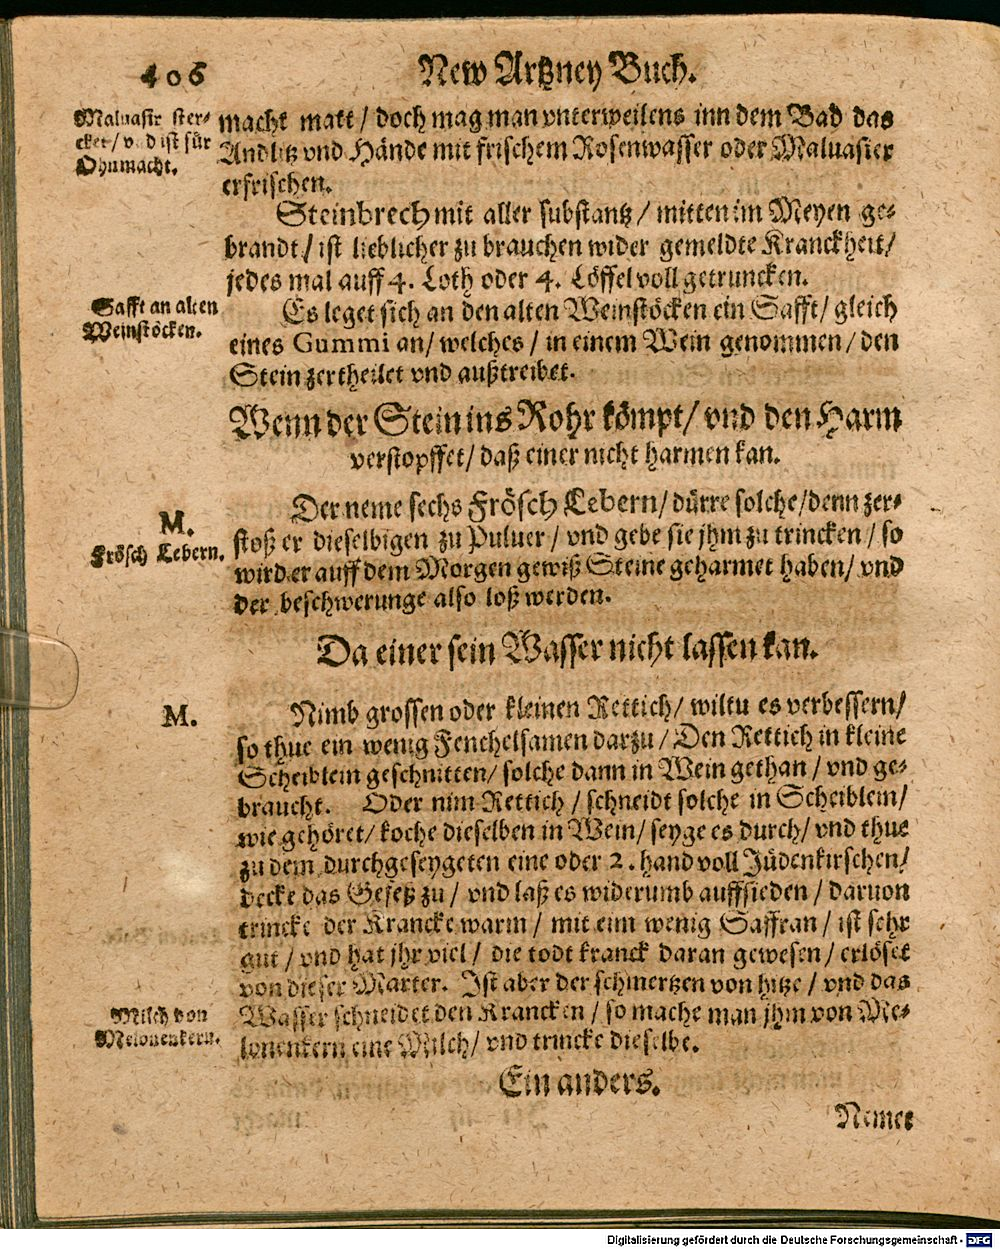 406
New Artzney Buch.
Maluasir ster-
cket/ vnd ist für
Ohnmacht.
macht matt / doch mag man vnterweilens inn dem Bad das
Andlitz vnd Hände mit frischem Rosenwasser oder Maluasier
erfrischen.
Steinbrech mit aller substantz / mitten im Meyen ge-
brandt / ist lieblicher zu brauchen wider gemeldte Kranckheit/
jedes mal auff 4. Loth oder 4. Löffel voll getruncken.
Safft an alten
Weinstöcken.
Es leget sich an den alten Weinstöcken ein Safft/ gleich
eines Gummi an/ welches / in einem Wein genommen / den
Stein zertheilet vnd außtreibet.
Wenn der Stein ins Rohr kömpt/ vnd den Harm
verstopffet/ daß einer nicht harmen kan.
M.
Frösch Lebern.
Der neme sechs Frösch Lebern/ dürre solche/denn zer-
stoß er dieselbigen zu Puluer / vnd gebe sie jhm zu trincken / so
wird er auff dem Morgen gewiß Steine geharmet haben/ vnd
der beschwerunge also loß werden.
Da einer sein Wasser nicht lassen kan.
M.
Nimb grossen oder kleinen Rettich/ wiltu es verbessern/
so thue ein wenig Fenchelsamen darzu / Den Rettich in kleine
Scheiblein geschnitten/ solche dann in Wein gethan / vnd ge-
braucht. Oder nim Rettich / schneidt solche in Scheiblein/
wie gehöret/ koche dieselben in Wein/ seyge es durch/ vnd thue
zu dem durchgeseygeten eine oder 2. hand voll Jüdenkirschen/
decke das Gefeß zu / vnd laß es widerumb auffsieden / daruon
trincke der Krancke warm / mit eim wenig Saffran / ist sehr
gut / vnd hat jhr viel / die todt kranck daran gewesen / erlöset
von dieser Marter. Ist aber der schmertzen von hitze / vnd das
Wasser schneidet den Krancken / so mache man jhm von Me-
lonenkern eine Milch/ vnd trincke dieselbe.
Milch von
Melonenkern.
Ein anders.
Nemet
Digitalisierung gefördert durch die Deutsche Forschungsgemeinschaft - DFG